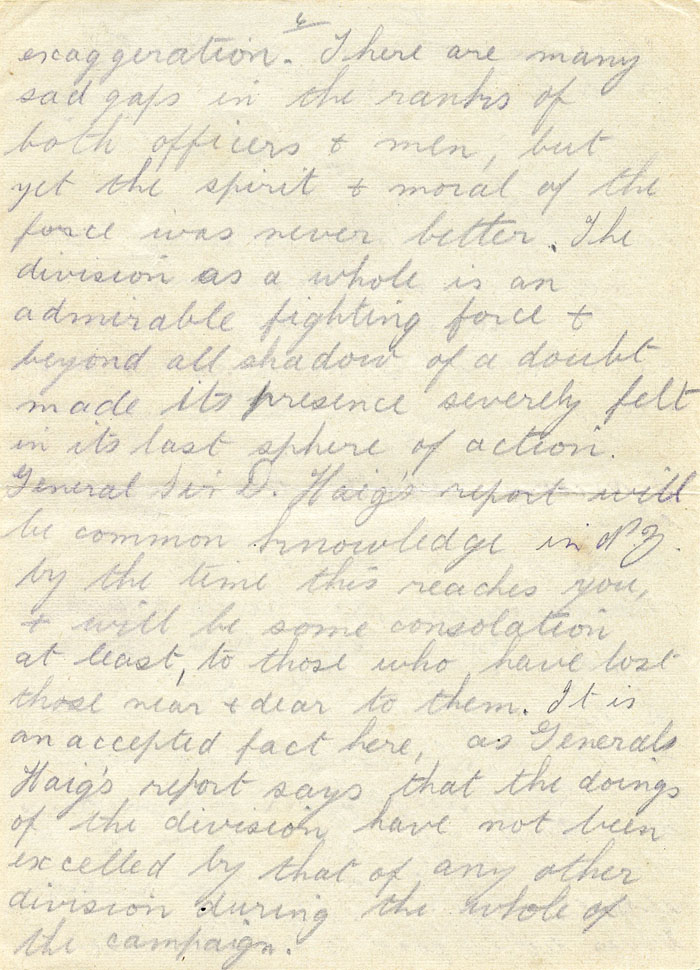 exaggeration. There are many
sad gaps in the ranks of
both officers + men, but
yet the spirit + moral of the
force was never better. The
division as a whole is an
admirable fighting force +
beyond all shadow of a doubt
made its presence severely felt
in its last sphere of action.
General Sir D. Haig's report will
be common knowledge in N.Z.
by the time this reaches you,
+ will be some consolation
at least, to those who have lost
those near + dear to them. It is
an accepted fact here, as Generals
Haig's report says that the doings
of the division have not been
excelled by that of any other
division during the whole of
the campaign.